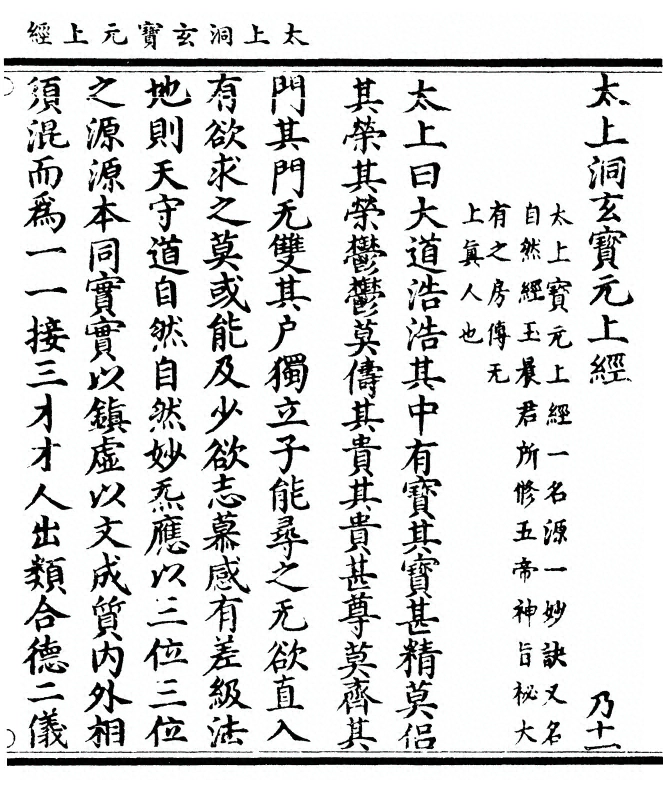 太上洞玄寶元上經
太上洞玄寶元上經
乃十一
太上寶元上經一名源一妙訣又名
自然經玉晨君所修五帝神旨秘大
有之房傳无
上眞人也
太上曰大道浩浩其中有寶其寶甚精莫侣
其榮其榮鬱鬱莫儔其貴其貴甚尊莫齊其
門其門无雙其户獨立子能尋之无欲直入
有欲求之莫或能及少欲志慕感有差級法
地則天守道自然自然妙炁應以三位三位
之源源本同實實以鎮虛以文成質内外相
須混而爲一一接三才才人出類合德二儀